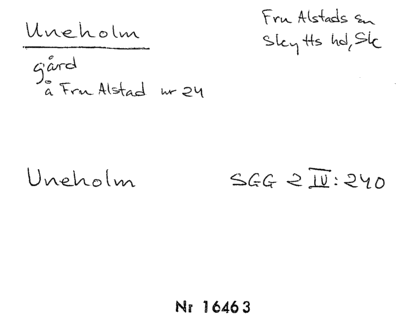 Uneholm
gård
å Fru Alstad nr 24
Fru Alstads sn
Skytts hd, Sk
Uneholm
SGG 2 IV: 240
Nr 16463